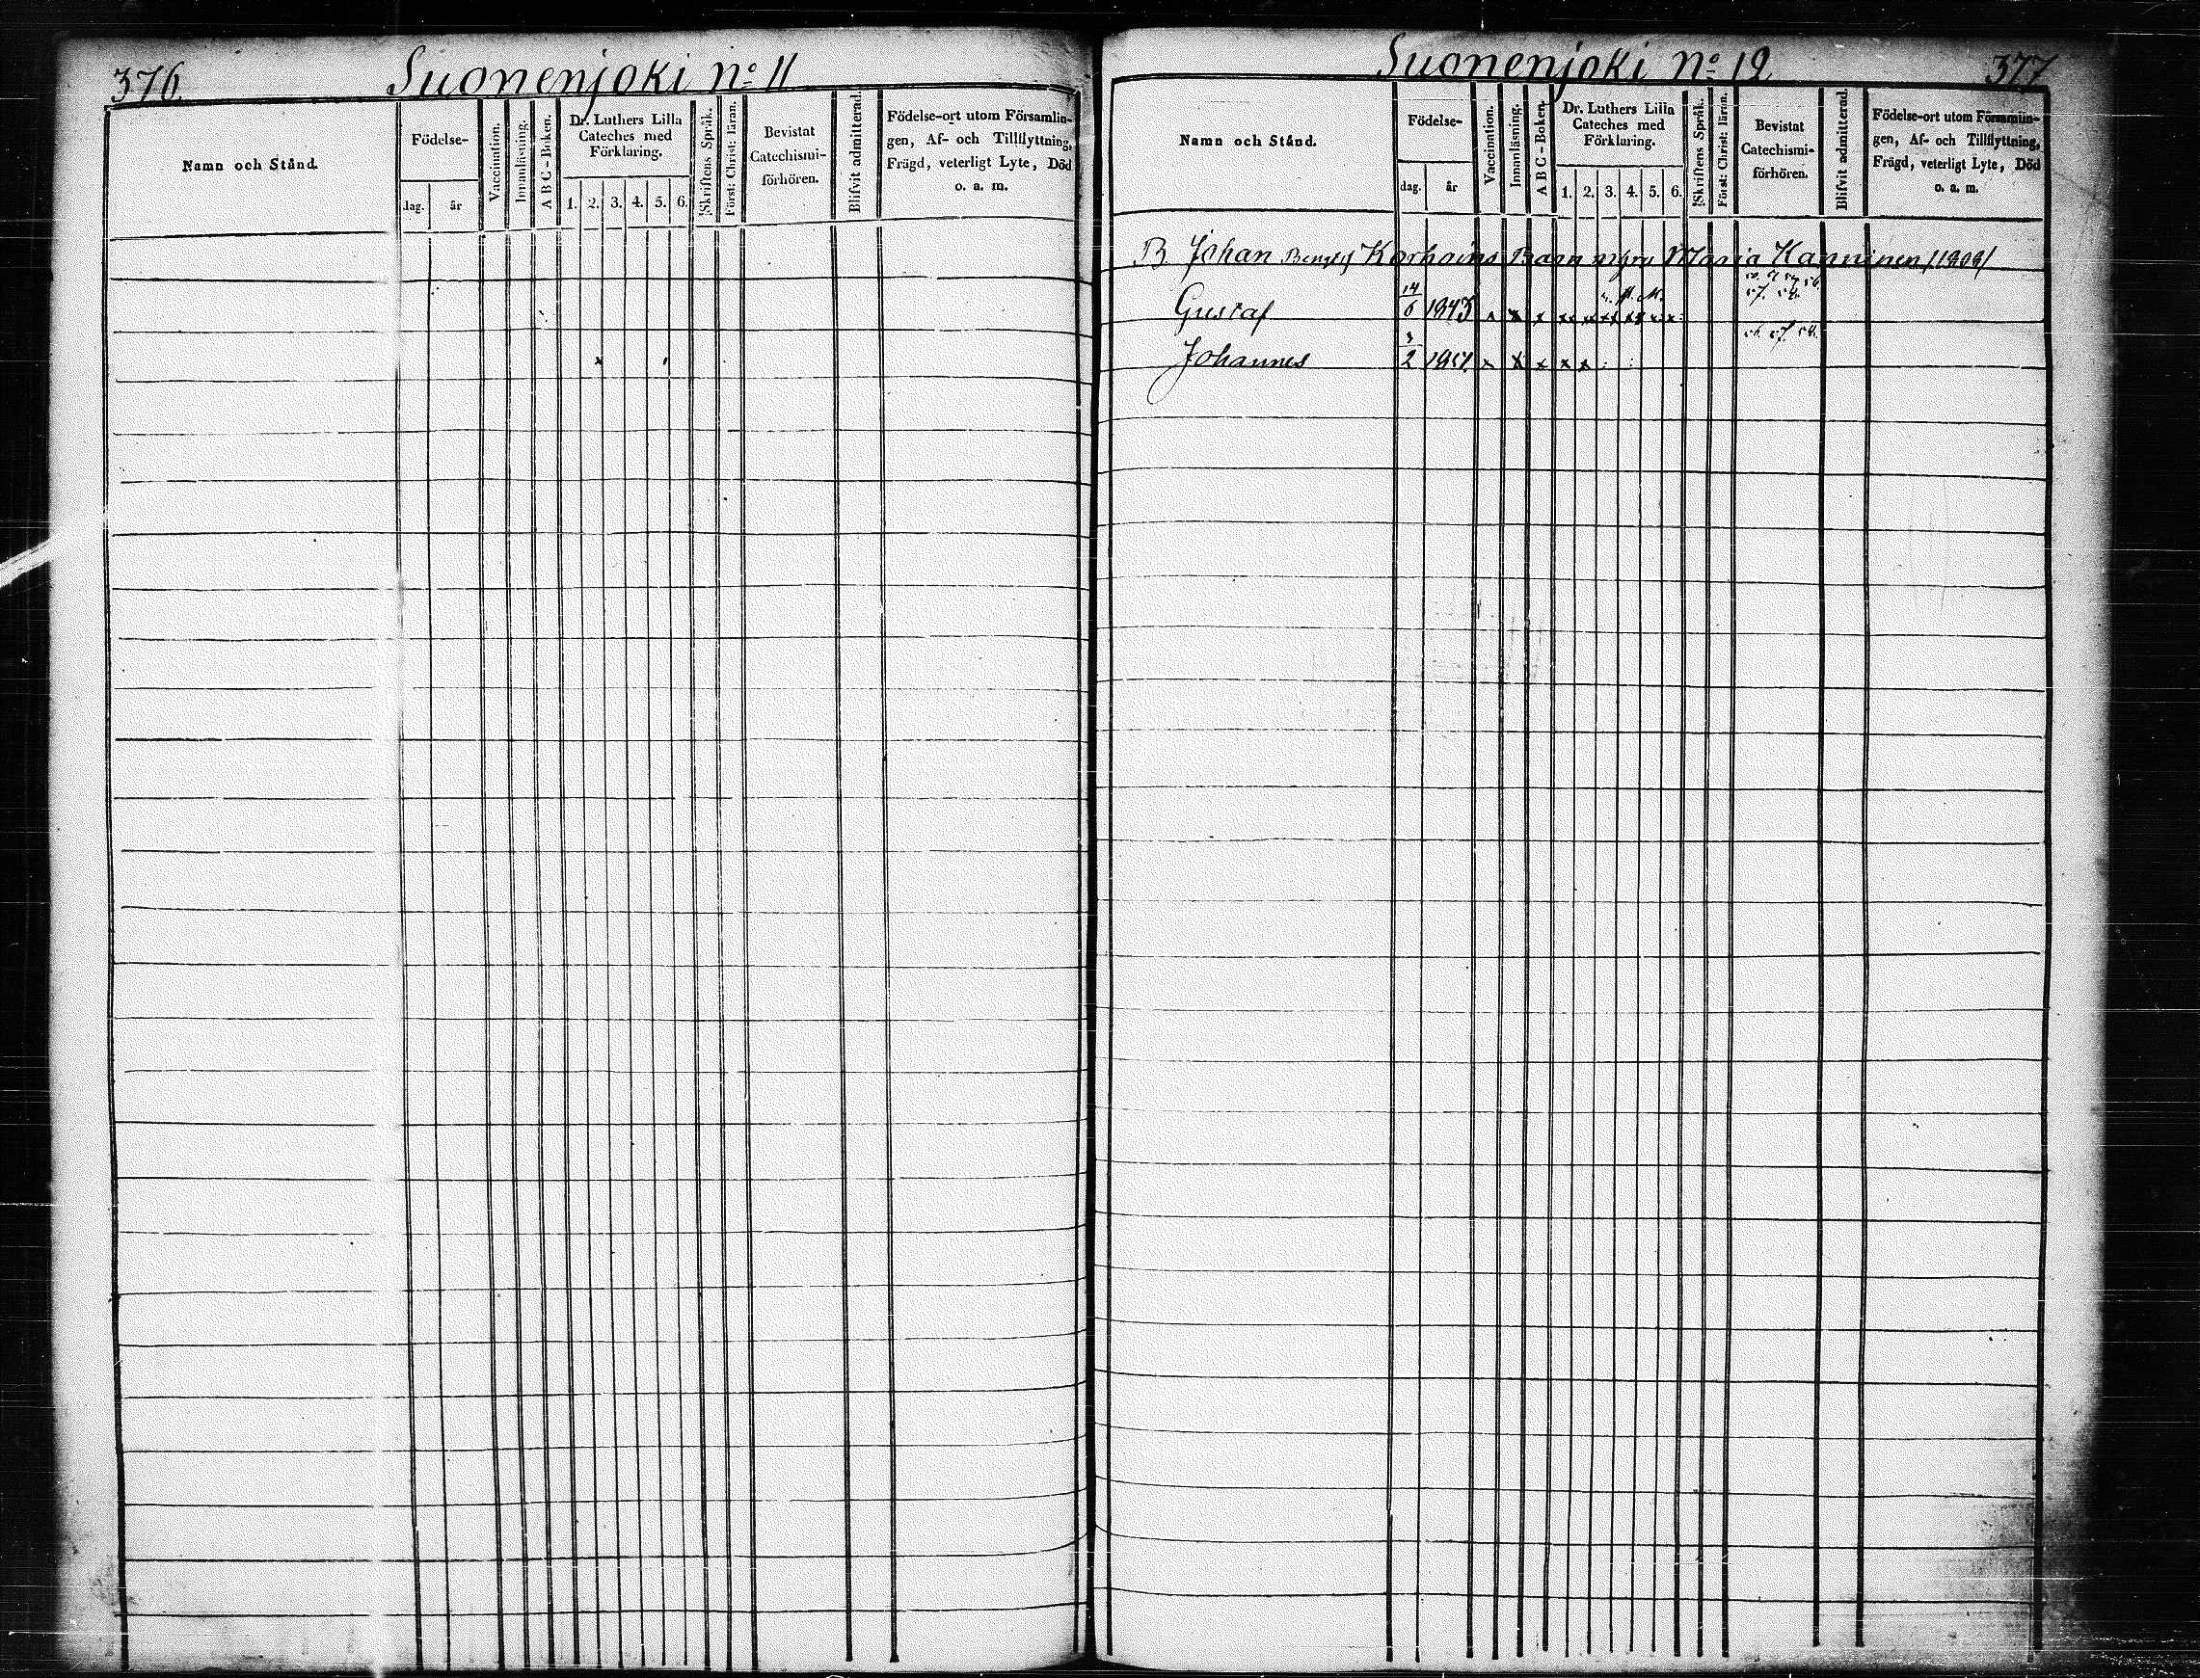 376.
Suonenjoki No 11
Namn och Stånd.
Födelse-
dag.
år
Vaccination.
Innanläsning.
A B C - Boken.
Dr. Luthers Lilla
Cateches med
Förklaring.
1. 2. 3. 4. 5. 6.
Skriftens Språk.
Först: Christ: läran.
Bevistat
Catechismi-
förhören.
Blifvit admitterad.
Födelse-ort utom Församlin-
gen, Af- och Tillflyttning,
Frägd, veterligt Lyte, Död
o. a. m.
Suonenjoki No 12
377
Namn och Stånd.
Födelse-
dag.
år
Vaccination.
Innanläsning.
A B C - Boken.
Dr. Luthers Lilla
Cateches med
Förklaring.
1. 2. 3. 4. 5. 6.
Skriftens Språk.
Först: Christ: läran.
Bevistat
Catechismi-
förhören.
Blifvit admitterad.
Födelse-ort utom Församlin-
gen, Af- och Tillflyttning,
Frägd, veterligt Lyte, Död
o. a. m.
B Johan Korhoins Barn Maria
Gustaf 14/6 1843 x x x
Johannes 2 x x x x x